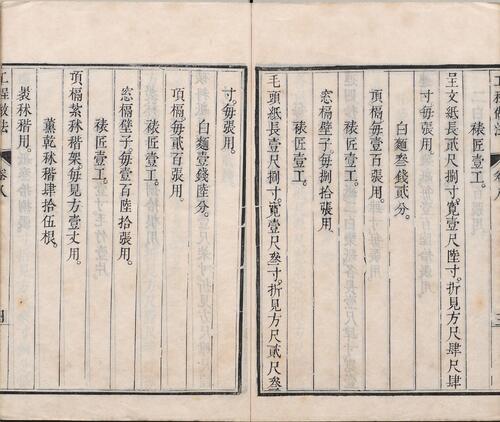 呈文紙長貳尺捌寸。寬壹尺陸寸。折見方尺肆尺肆
寸。每張用。
白麵叁錢貳分。
頂槅。每百張用。
裱匠壹工。
窓槅壁子。每捌拾張用。
裱匠壹工。
毛頭紙長壹尺捌寸。寬壹尺叁寸。折見方尺貳尺叁
寸。每張用。
白麵壹錢陸分。
頂槅。每貳百張用。
裱匠壹工。
窓槅壁子。每壹百陸拾張用。
裱匠壹工。
頂槅紥秫稭架每見方壹丈用。
藁乾秫稭肆拾伍根。
裹秫稭用。
工程做法 卷八 四